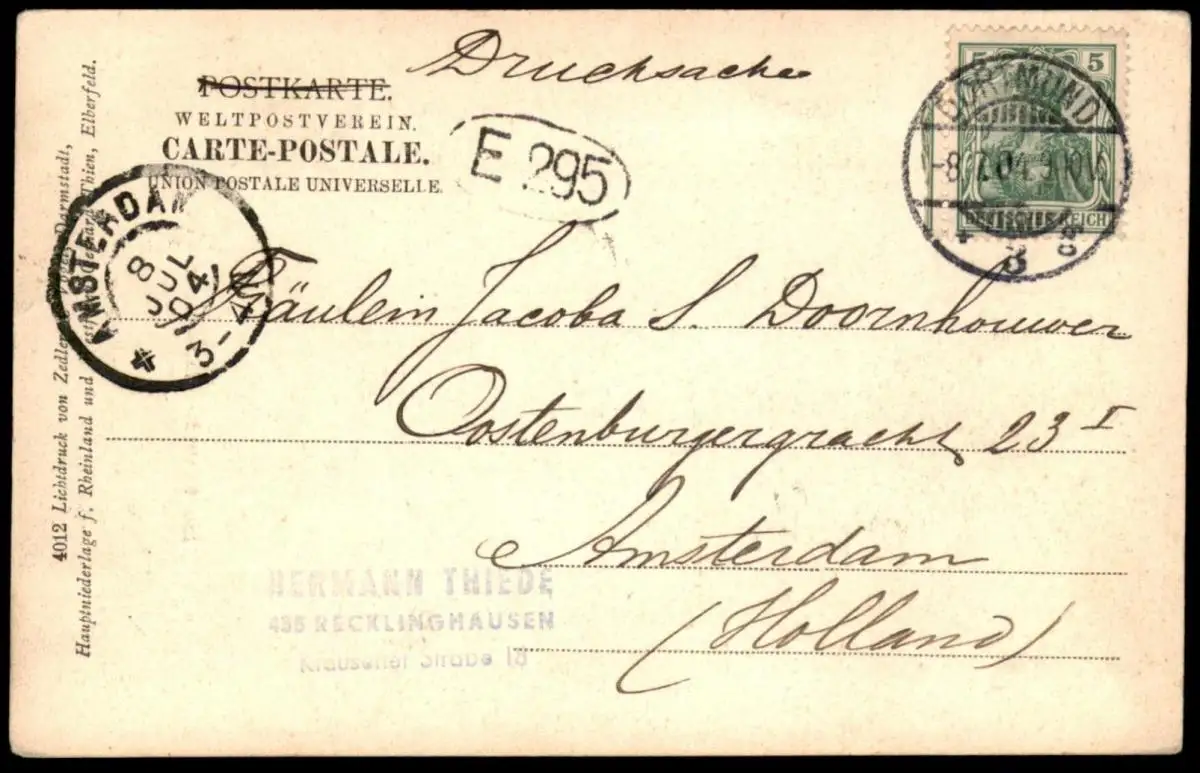 Drucksache
POSTKARTE.
WELTPOSTVEREIN.
CARTE-POSTALE.
UNION POSTALE UNIVERSELLE.
E 295
5 5
DEUTSCHES REICH
DORTMUND
-8.7.04.9-10V.
3 ao
AMSTERDAM
8
JUL
04
3-4
Fräulein Jacoba S. Doornhouwer
Oostenburgergracht 23 I
Amsterdam
(Holland)
HERMANN THIEDE
435 RECKLINGHAUSEN
Straße 18
4012 Lichtdruck von Zedler Darmstadt,
Hauptniederlage f. Rheinland und Thien, Elberfeld.